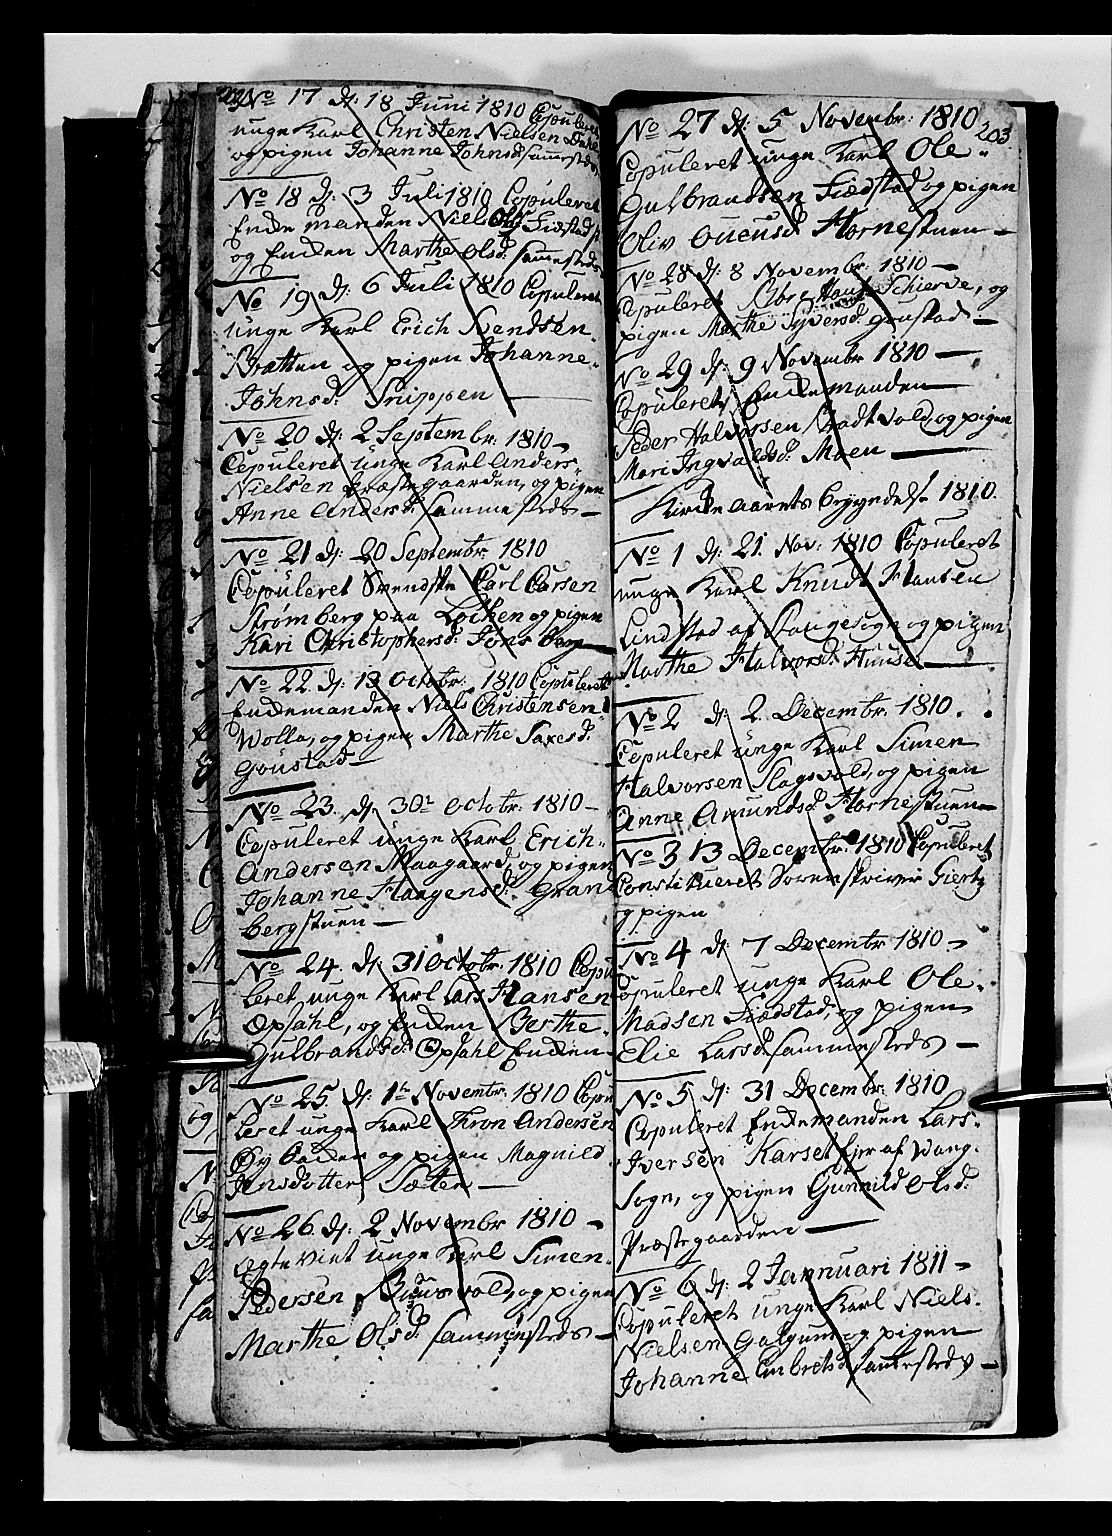 No 17 d: 18 Juni 1810 Copuleret
unge Karl Christen Nielsen Dahl
og pigen Johanne Johnsd: sammesteds
No 18 d: 3 Juli 1810 Copuleret
Enkemanden Niels Ols: Fiædstad
og Enken Marthe Olsd: sammesteds
No 19 d: 6 Juli 1810 Copuleret
unge Karl Erich Svendsen
Bratten og pigen Johanne
Johnsd: Snippen
No 20 d: 2 Septembr: 1810
Copuleret unge Karl Anders
Nielsen Præstegaarden, og pigen
Anne Andersd: sammesteds
No 21 d: 20 Septembr: 1810
Copuleret Svendske Carl Carsen
Strømberg paa Løcken og pigen
Kari Christophersd: Jønsberg
No 22. d: 13 Octobr: 1810 Copuleret
Enkemanden Niels Christensen
Wolla, og pigen Marthe Saxesd:
Goustad
No 23. d: 30 Octobr: 1810
Copuleret unge Karl Erich
Andersen Maagaard, og pigen
Johanne Haagensd: Gran
bergstuen
No 24. d: 31 Octobr: 1810 Copu
leret unge Karl Lars Hansen
Opsahl, og Enken Berthe
Gulbrandsd: Opsahl Enken
No 25 d: 1 Novembr: 1810 Copu
leret unge Karl Thron Andersen
og pigen Magnild
Jensdotter Sæter
No 26. d: 2 Novembr 1810
ægteviet unge Karl Simen
Pedersen Buusvold, og pigen
Marthe Olsd: sammesteds
203
No 27 d: 5 Novembr: 1810
Copuleret unge Karl Ole
Gulbrandsen Fiædstad og pigen
Oliv Ouensd: Hornestuen
No 28 d: 8 Novembr: 1810
Copuleret Schierve, og
pigen Marthe Syversd: Goustad
No 29 d: 9 Novembr 1810
Copuleret Enkemanden
Peder Halvorsen Bradtvold, og pigen
Mari Ingvaldsd: Moen
Kirke aarets begyndelse 1810.
No 1 d: 21. Nov: 1810 Copuleret
unge Karl Knudt Hansen
Lindstad af Stangesogn og pigen
Marthe Halvorsd: Huuse
No 2 d: 2. Decembr: 1810.
Copuleret unge Karl Simen
Halvorsen Slagsvold, og pigen
Anne Amundsd: Hornestuen
No 3 13 Decembr: 1810 Copuleret
Constitueret Sorenskriver Giertz
og pigen
No 4 d: 7 Decembr 1810
Copuleret unge Karl Ole
Madsen Fiædstad, og pigen
Elie Larsd: sammesteds
No 5 d: 31 Decembr: 1810
Copuleret Enkemanden Lars
Iversen Karset Ejer af Wang
Sogn, og pigen Gunnild Olsd:
Præstegaarden
No 6 d: 2 Januari 1811
Copuleret unge Karl Niels
Nielsen Galgum og pigen
Johanne Embretsd: sammesteds